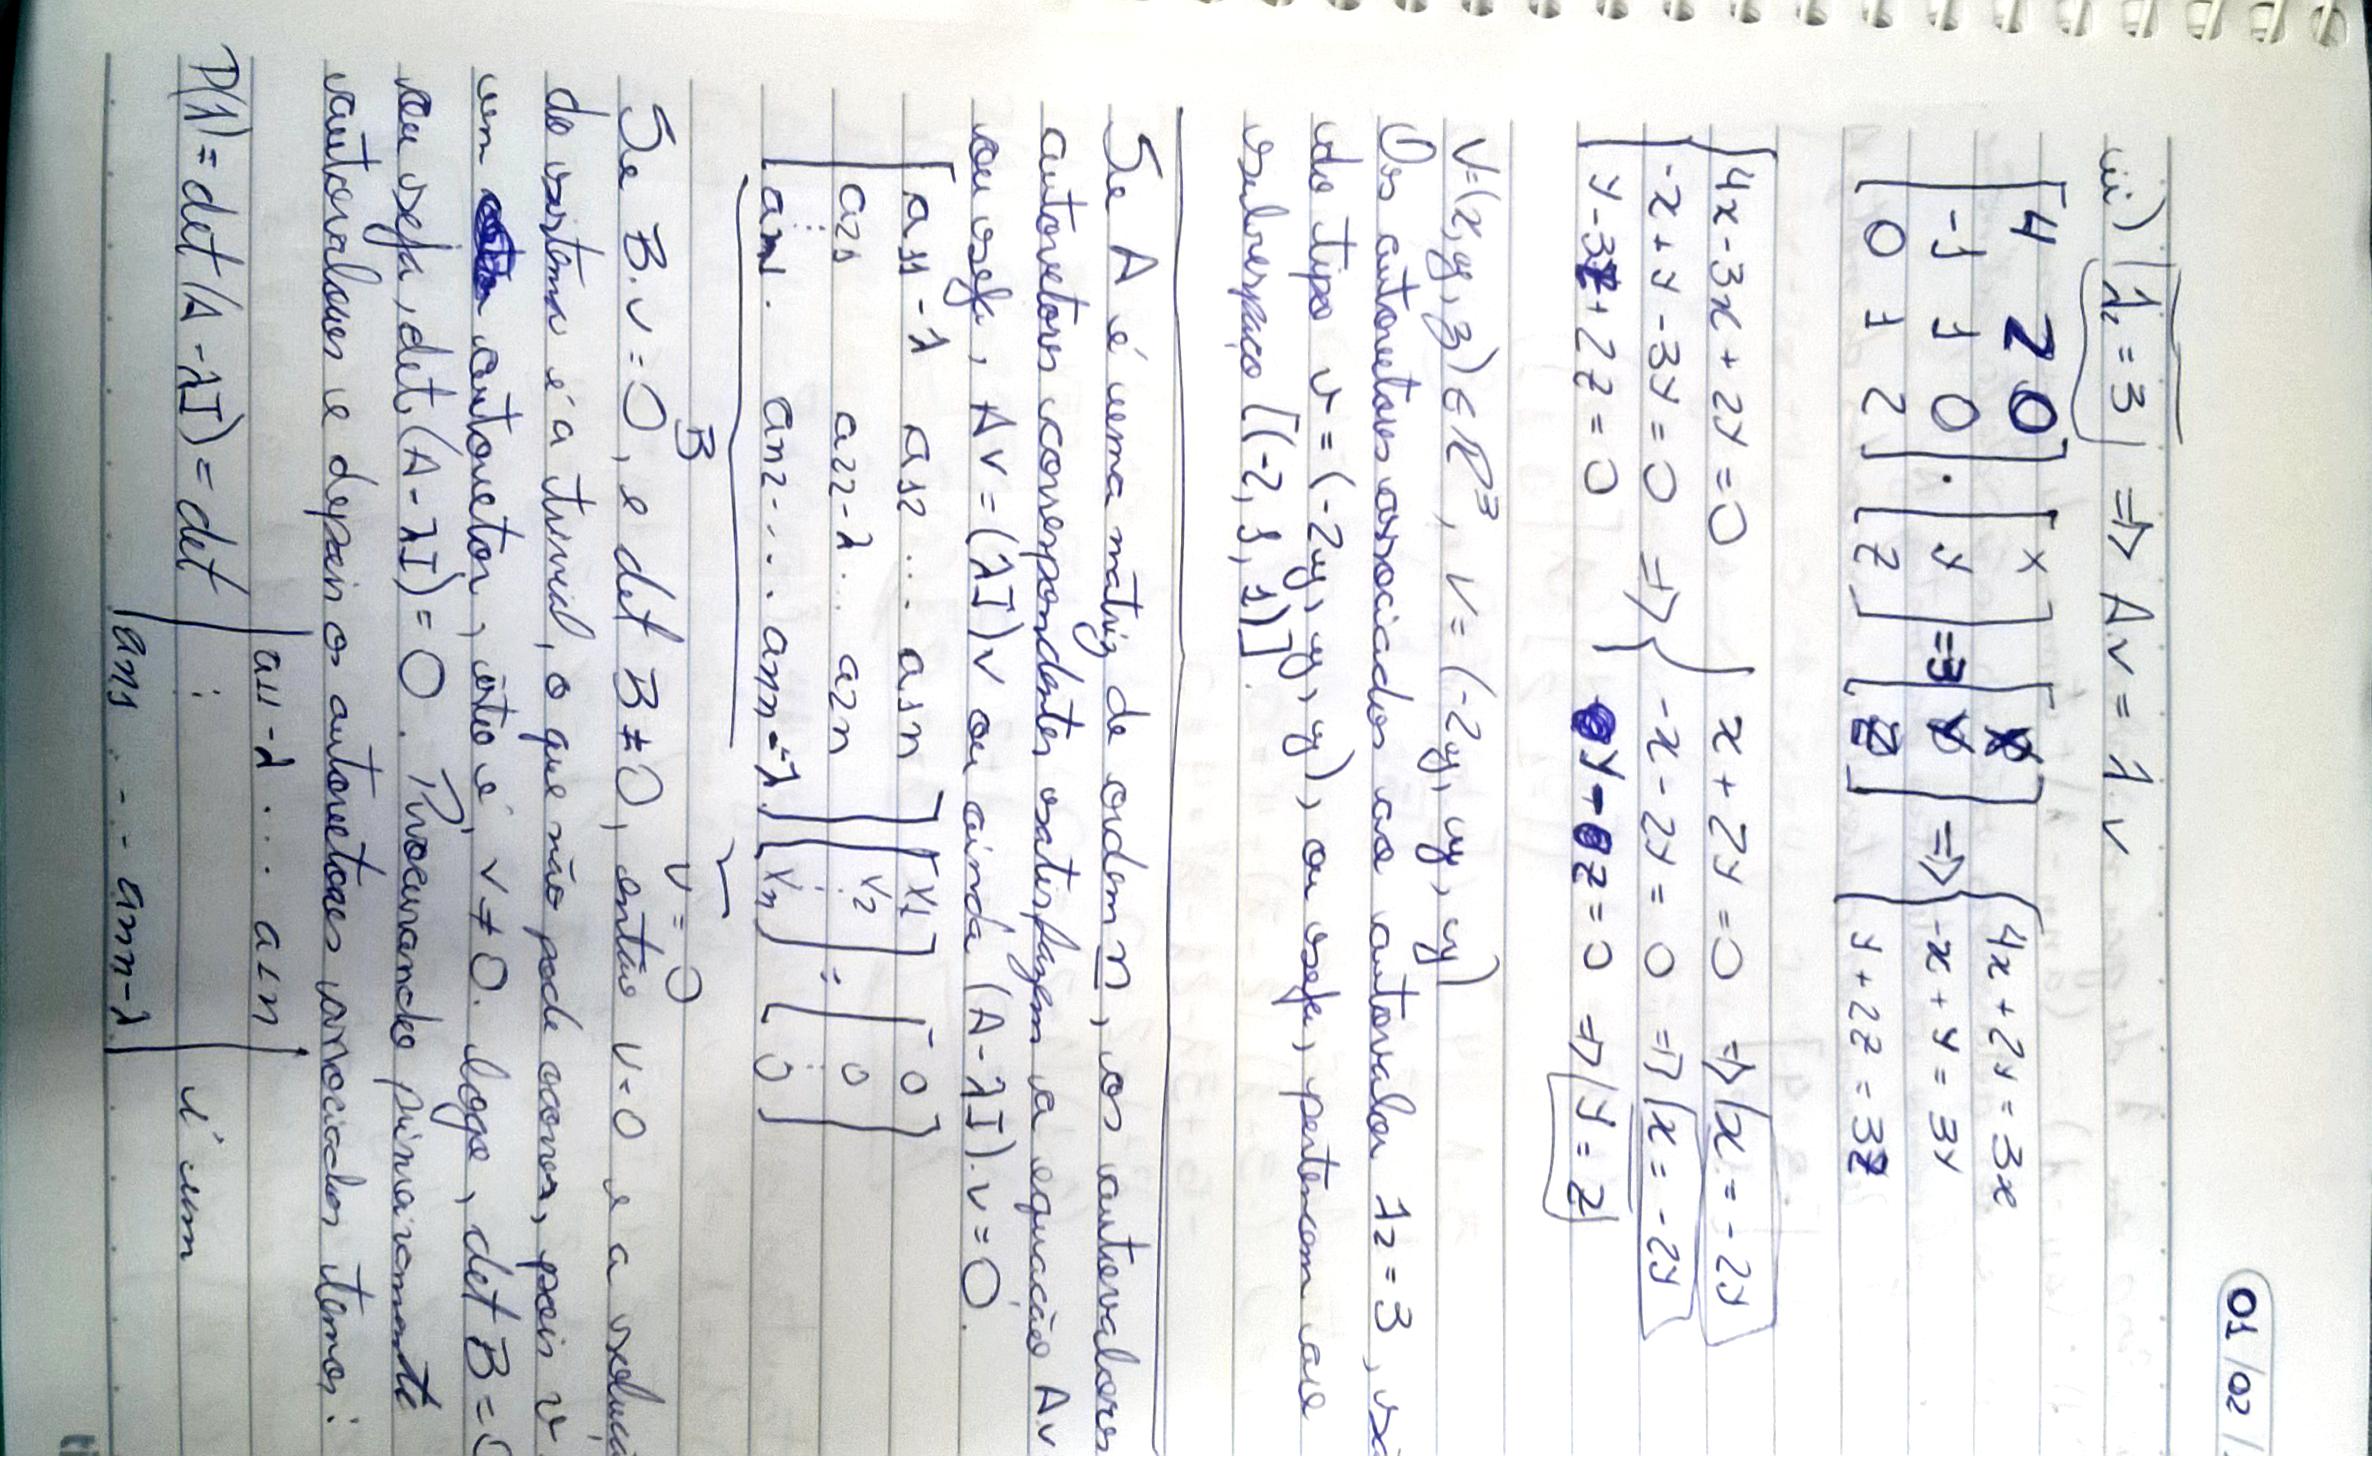 01/02/
iii) λ₂ = 3 ⇒ A.v = λ.v
[4 2 0; -1 1 0; 0 1 2] . [x; y; z] = 3 [x; y; z] ⇒ { 4x + 2y = 3x; -x + y = 3y; y + 2z = 3z
{ 4x - 3x + 2y = 0 ⇒ { x + 2y = 0 ⇒ x = -2y
-x + y - 3y = 0 ⇒ -x - 2y = 0 ⇒ x = -2y
y - 3z + 2z = 0 y - z = 0 ⇒ y = z
V=(x,y,z) ∈ R³, V = (-2y, y, y)
Os autovetores associados ao autovalor λ2 = 3, sã
do tipo v = (-2y, y, y), ou seja, pertencem ao
subespaço [(-2, 1, 1)].
Se A é uma matriz de ordem n, os autovalores
autovetores correspondentes satisfazem a equação Av
ou seja, AV = (λI)V ou ainda (A - λI).v = 0.
[a11 - λ a12 ... a1n] [v1] = [0]
[a21 a22 - λ ... a2n] [v2] [0]
⋮ ⋮ ⋮
[an1 . an2 ..... ann - λ] [vn] [0]
B v = 0
Se B.v = 0, e det B ≠ 0, então v = 0 e a soluçã
do sistema é a trivial, o que não pode ocorrer, pois v
um autovetor, isto é, v ≠ 0. logo, det B = 0
ou seja, det (A - λI) = 0. Procurando primeiramente
autovalores e depois os autovetores associados temos:
P(λ) = det (A - λI) = det |a11 - λ ... a1n; ⋮; an1 ... ann - λ| é um
ti